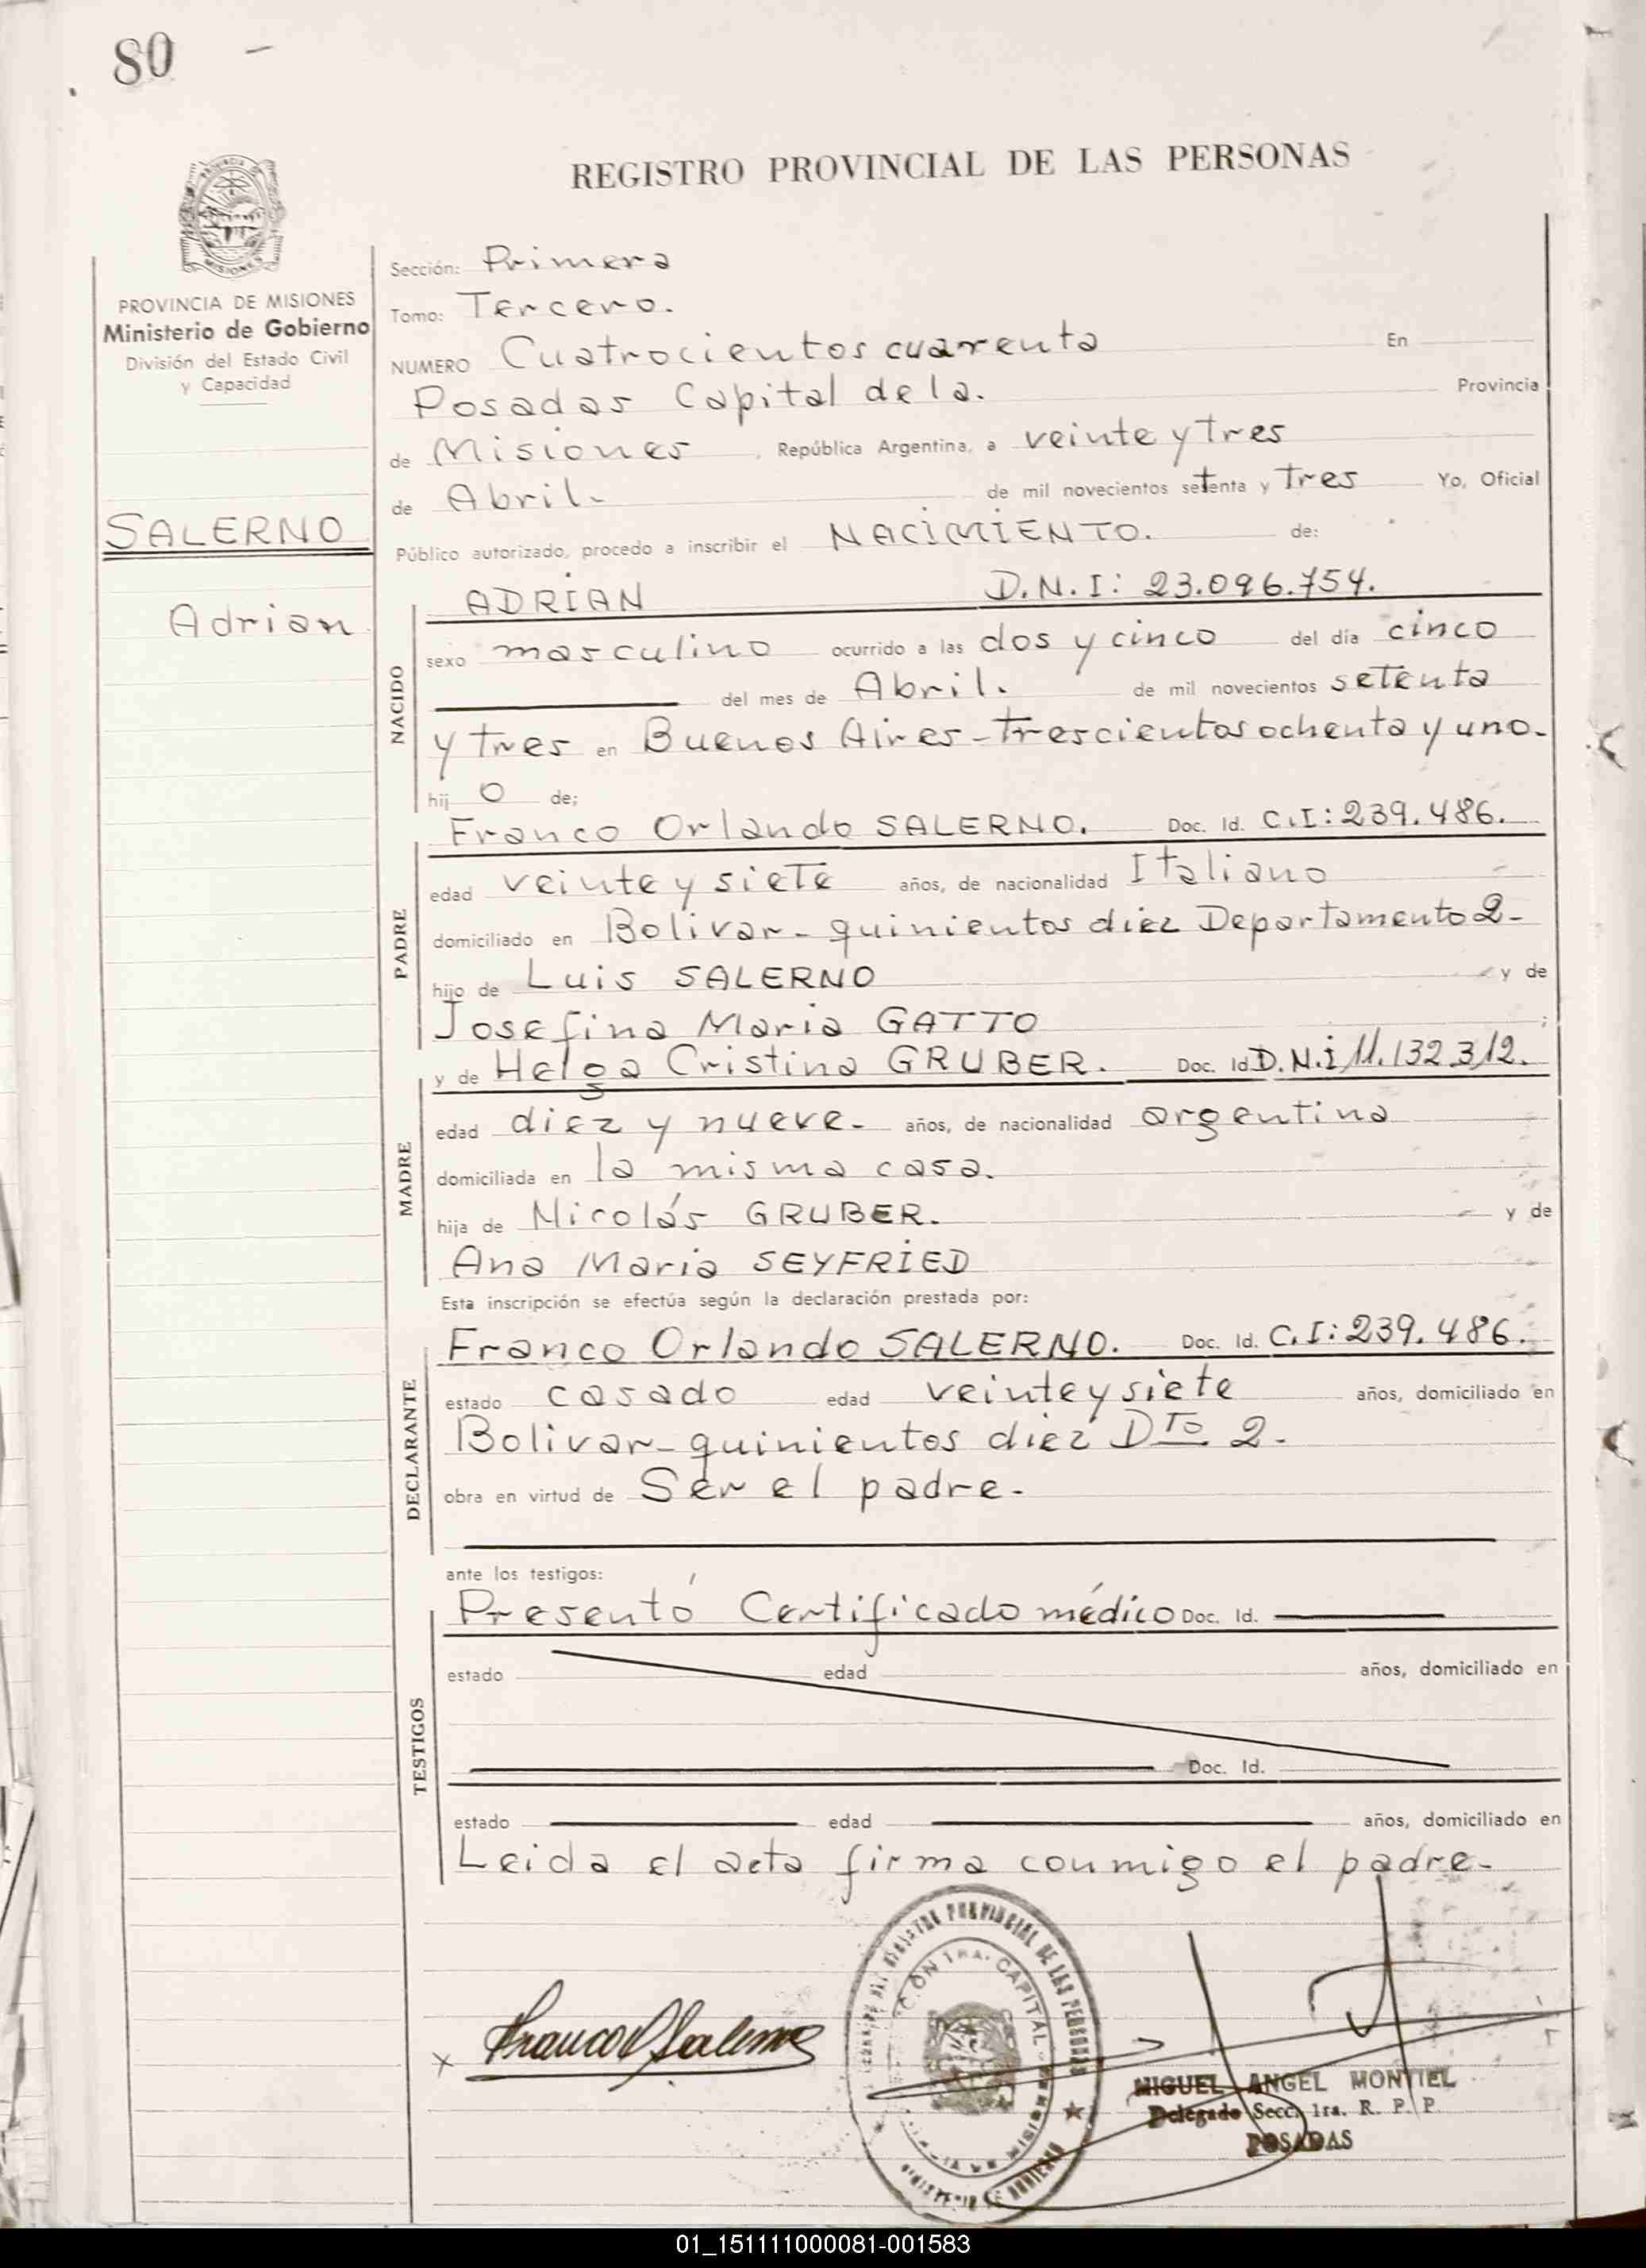 80 -
REGISTRO PROVINCIAL DE LAS PERSONAS
PROVINCIA DE MISIONES
Ministerio de Gobierno
División del Estado Civil
y Capacidad
SALERNO
Adrian
Sección: Primera
Tomo: Tercero.
NUMERO Cuatrocientos cuarenta En
Posadas Capital de la. Provincia
de Misiones , República Argentina, a veinte y tres
de Abril. de mil novecientos setenta y tres Yo, Oficial
Público autorizado, procedo a inscribir el NACIMIENTO. de:
NACIDO
ADRIAN D.N.I: 23.096.754.
sexo masculino ocurrido a las dos y cinco del día cinco
del mes de Abril. de mil novecientos setenta
y tres en Buenos Aires - trescientos ochenta y uno.
hij o de;
PADRE
Franco Orlando SALERNO. Doc. Id. C.I: 239.486.
edad veinte y siete años, de nacionalidad Italiano
domiciliado en Bolivar - quinientos diez Departamento 2-
hijo de Luis SALERNO y de
Josefina Maria GATTO ;
MADRE
y de Helga Cristina GRUBER. Doc. Id D.N.i 11.132.312.
edad diez y nueve- años, de nacionalidad argentina
domiciliada en la misma casa.
hija de Nicolás GRUBER. y de
Ana Maria SEYFRIED
Esta inscripción se efectúa según la declaración prestada por:
DECLARANTE
Franco Orlando SALERNO. Doc. Id. C.I: 239.486.
estado casado edad veinte y siete años, domiciliado en
Bolivar - quinientos diez Dto 2-
obra en virtud de Ser el padre-
ante los testigos:
TESTIGOS
Presentó Certificado médico Doc. Id.
estado edad años, domiciliado en
Doc. Id.
estado edad años, domiciliado en
Leida el acta firma conmigo el padre-
x Franco O Salerno
REGISTRO PROVINCIAL DE LAS PERSONAS
CAPITAL
MINISTERIO DE GOBIERNO
MIGUEL ANGEL MONTIEL
Delegado Secc. 1ra. R. P. P.
POSADAS
01_151111000081-001583